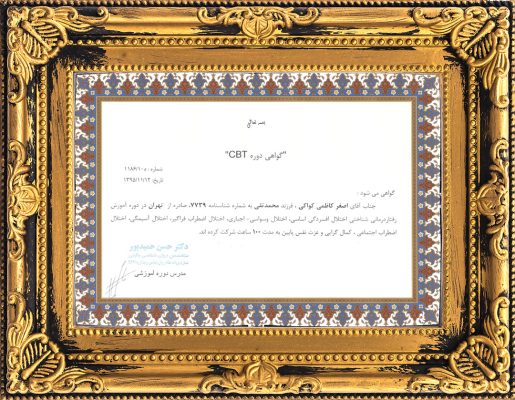 بسمه تعالی
"گواهی دوره CBT"
شماره : ۱۱۸۶/۱۰۵
تاریخ: ۱۳۹۵/۱۱/۱۲
گواهی می شود :
جناب آقای اصغر کاظمی کواکی ، فرزند محمدتقی به شماره شناسنامه ۷۷۳۹، صادره از تهران در دوره آموزش
رفتاردرمانی شناختی اختلال افسردگی اساسی، اختلال وسواسی - اجباری، اختلال اضطراب فراگیر، اختلال آسیمگی، اختلال
اضطراب اجتماعی ، کمال گرایی و عزت نفس پایین به مدت ۱۰۰ ساعت شرکت کرده اند.
دکتر حسن حمیدپور
مدرس دوره آموزشی